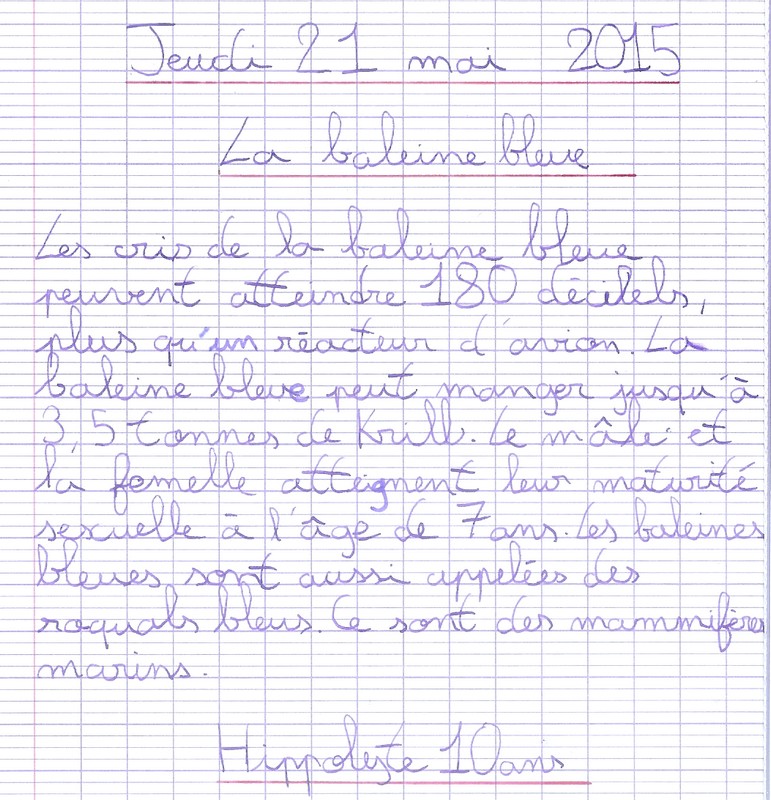 Jeudi 21 mai 2015
La baleine bleue
Les cris de la baleine bleue
peuvent atteindre 180 décilels,
plus qu'un réacteur d'avion. La
baleine bleue peut manger jusqu'à
3,5 tonnes de Krill. Le mâle et
la femelle atteignent leur maturité
sexuelle à l'âge de 7 ans. Les baleines
bleues sont aussi appelées des
roquals bleus. Ce sont des mammifères
marins.
Hippolyte 10 ans